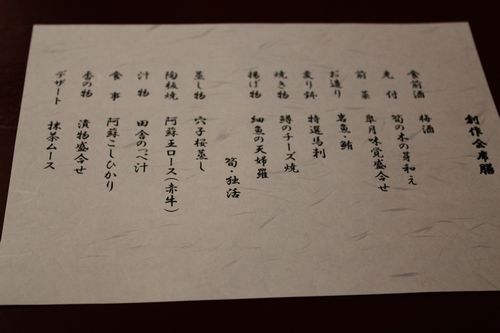 創作会席膳
食前酒 梅酒
先付 筍の木の芽和え
前菜 皐月味覚盛合せ
お造り 岩魚・鮪
変り鉢 特選馬刺
焼き物 鱒のチーズ焼
揚げ物 細魚の天婦羅
筍・独活
蒸し物 穴子桜蒸し
陶板焼 阿蘇王ロース(赤牛)
汁物 田舎のっぺ汁
食事 阿蘇こしひかり
香の物 漬物盛合せ
デザート 抹茶ムース